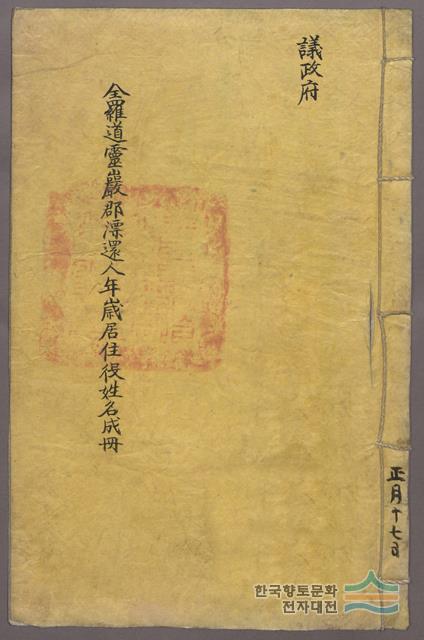 議政府
全羅道靈巖郡漂還人年歲居住役姓名成冊
正月十七日
한국향토문화
전자대전